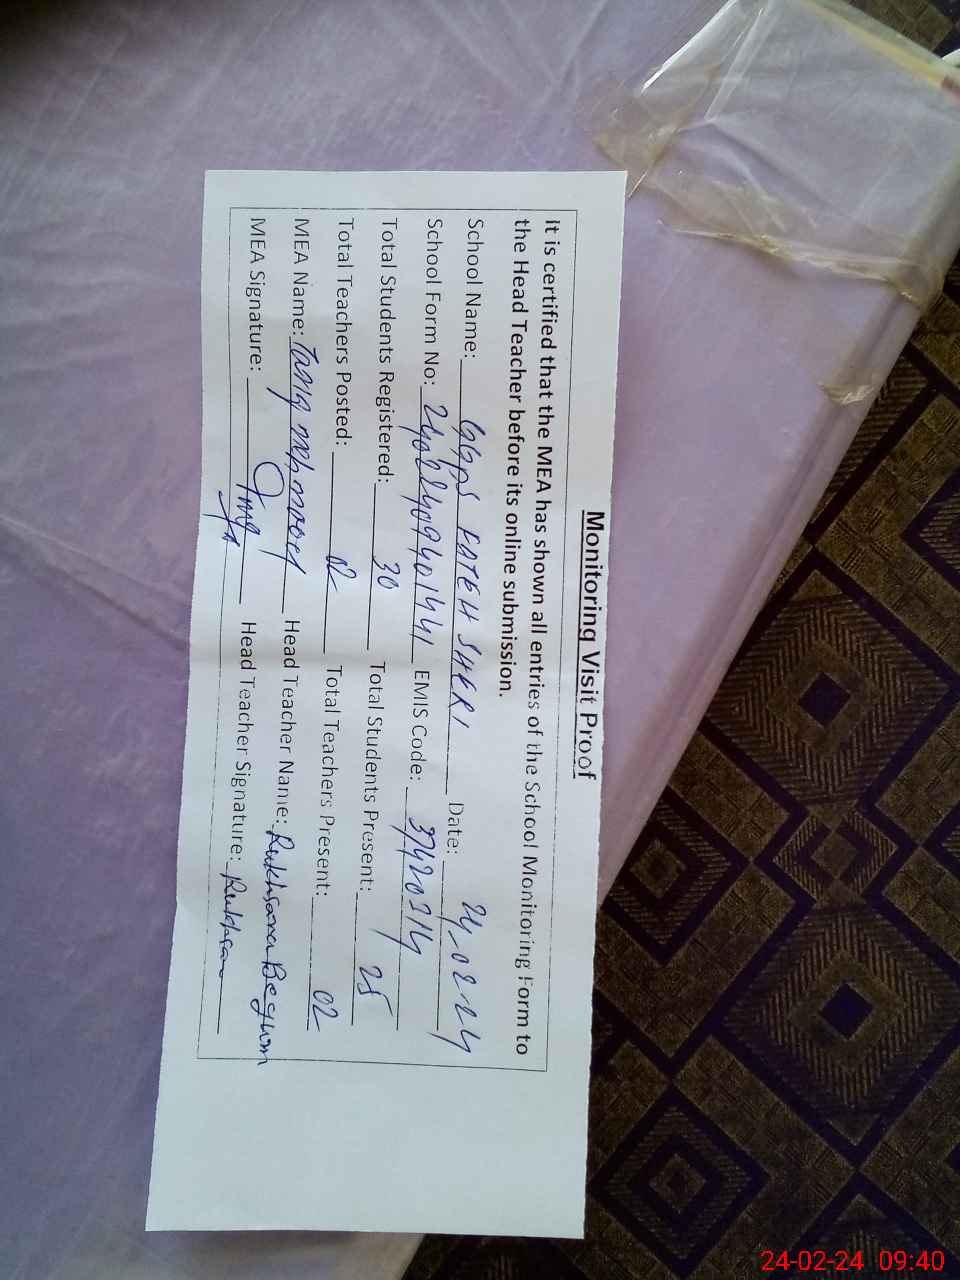 Monitoring Visit Proof
It is certified that the MEA has shown all entries of the School Monitoring Form to
the Head Teacher before its online submission.
School Name: GGPS FATEH SHER I Date: 24-02-24
School Form No: 24022409401441 EMIS Code: 37420314
Total Students Registered: 30 Total Students Present: 25
Total Teachers Posted: 02 Total Teachers Present: 02
MEA Name: Tariq mehmood Head Teacher Name: Rukhsana Begum
MEA Signature: Head Teacher Signature: Rukhsana
24-02-24 09:40